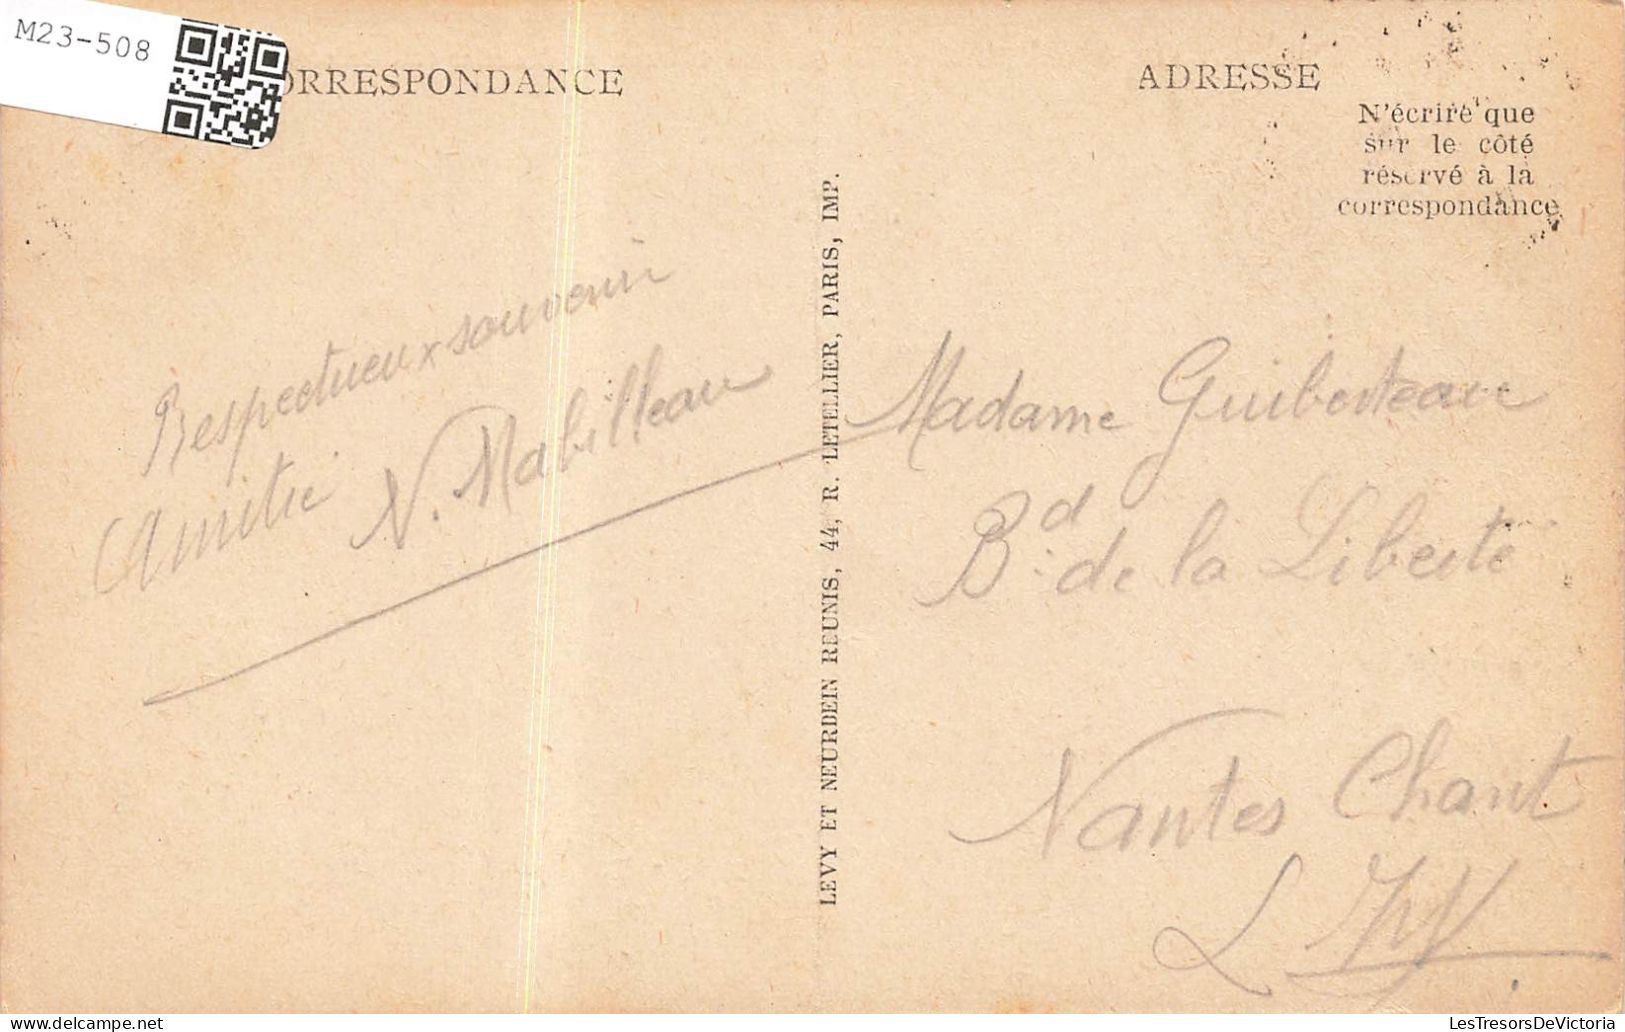 M23-508
ORRESPONDANCE
Respectueux souvenir
Amitié N. Mabilleau
LEVY ET NEURDEIN REUNIS, 44, R. LETELLIER, PARIS, IMP.
ADRESSE
N'écrire que
sur le côté
réservé à la
correspondance
Madame Guiberteau
Bd. de la Liberté
Nantes Chant
L
LesTresorsDeVictoria.com